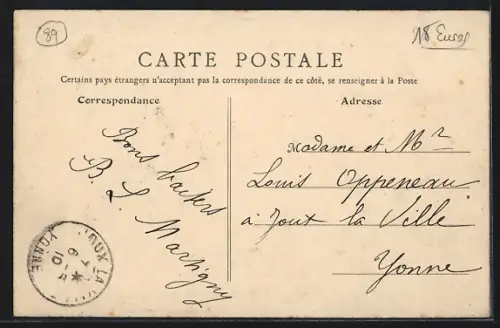 89
18 Euros
CARTE POSTALE
Certains pays étrangers n'acceptant pas la correspondance de ce côté, se renseigner à la Poste
Correspondance
Adresse
Bons baisers
B. L. Martigny
Madame et Mr
Louis Oppeneau
à Jout la Ville
Yonne
JOUX LA VILLE
7 6 10
YONNE